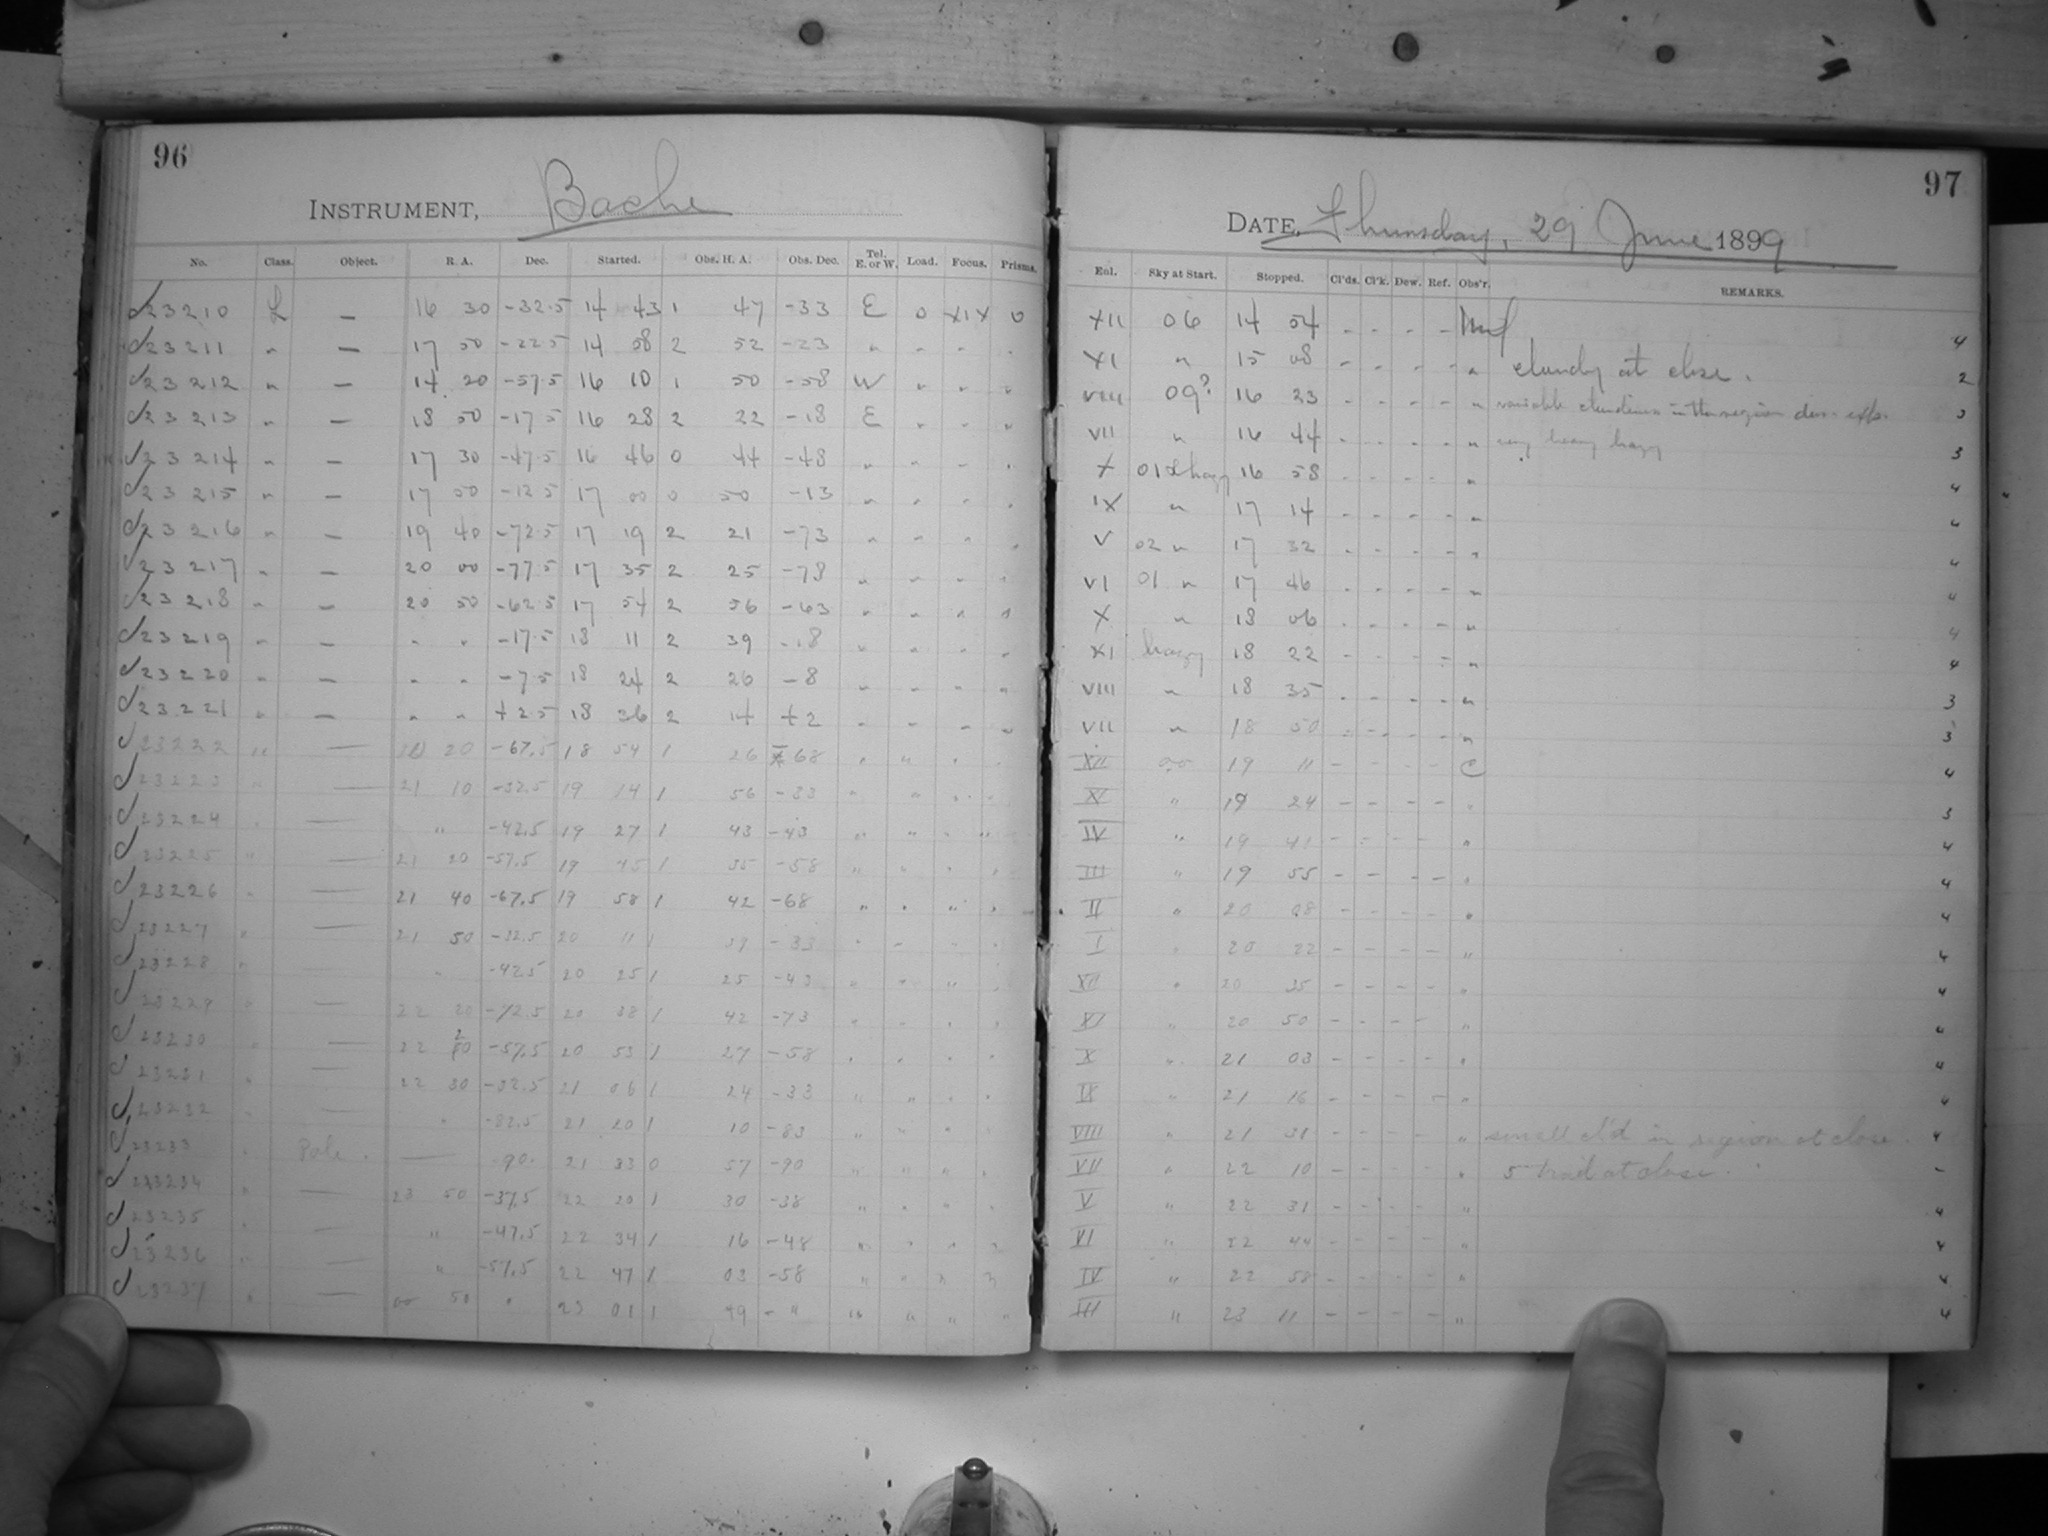 96
INSTRUMENT, Bache
No. Class. Object. R. A. Dec. Started. Obs. H. A. Obs. Dec. Tel. E. or W. Load. Focus. Prisms.
23210 L — 16 30 -32.5 14 43 1 47 -33 E 0 XIX 0
23211 " — 17 50 -22.5 14 58 2 52 -23 " " " "
23212 " — 14 20 -57.5 16 10 1 50 -58 W " " "
23213 " — 18 50 -17.5 16 28 2 22 -18 E " " "
23214 " — 17 30 -47.5 16 46 0 44 -48 " " " "
23215 " — 17 50 -12.5 17 00 0 50 -13 " " " "
23216 " — 19 40 -72.5 17 19 2 21 -73 " " " "
23217 " — 20 00 -77.5 17 35 2 25 -78 " " " "
23218 " — 20 50 -62.5 17 54 2 56 -63 " " " "
23219 " — " " -17.5 18 11 2 39 -18 " " " "
23220 " — " " -7.5 18 24 2 26 -8 " " " "
23221 " — " " +2.5 18 36 2 14 +2 " " " "
23222 " — 20 -67.5 18 54 1 26 -68 " " " "
23223 " — 21 10 -32.5 19 14 1 56 -33 " " " "
23224 " — " -42.5 19 27 1 43 -43 " " " "
23225 " — 21 20 -57.5 19 45 1 35 -58 " " " "
23226 " — 21 40 -67.5 19 58 1 42 -68 " " " "
23227 " — 21 50 -32.5 20 11 1 39 -33 " " " "
23228 " " -42.5 20 25 1 25 -43 " " " "
23229 " — 22 20 -72.5 20 38 1 42 -73 " " " "
23230 " — 22 20 -57.5 20 53 1 27 -58 " " " "
23231 " — 22 30 -32.5 21 06 1 24 -33 " " " "
23232 " — " -82.5 21 20 1 10 -83 " " " "
23233 " Pole. — -90. 21 33 0 57 -90 " " " "
23234 " — 23 50 -37.5 22 20 1 30 -38 " " " "
23235 " — " -47.5 22 34 1 16 -48 " " " "
23236 " — " -57.5 22 47 1 03 -58 " " " "
23237 " — 00 50 " 23 01 1 49 - " " " " "
97
DATE, Thursday, 29 June 1899
Enl. Sky at Start. Stopped. Cl'ds. Cl'k. Dew. Ref. Obs'r. REMARKS.
XII 06 14 54 - - - - 4
XI " 15 08 - - - - " cloudy at close. 2
VIII 09? 16 23 - - - - " variable cloudiness in the region dur. exp. 3
VII " 16 44 - - - - " very heavy hazy 3
X 01 & hazy 16 58 - - - - " 4
IX " 17 14 - - - - " 4
V 02 " 17 32 - - - - " 4
VI 01 " 17 46 - - - - " 4
X " 18 06 - - - - " 4
XI hazy 18 22 - - - - " 4
VIII " 18 35 - - - - " 3
VII " 18 50 - - - - " 3
XII 00 19 11 - - - - C 4
XI " 19 24 - - - - " 3
IV " 19 41 - - - - " 4
III " 19 55 - - - - " 4
II " 20 08 - - - - " 4
I " 20 22 - - - - " 4
XII " 20 35 - - - - " 4
XI " 20 50 - - - - " 4
X " 21 03 - - - - " 4
IX " 21 16 - - - - " 4
VIII " 21 31 - - - - " small cl'd in region at close. 4
VII " 22 10 - - - - " at close. -
V " 22 31 - - - - " 4
VI " 22 44 - - - - " 4
IV " 22 58 - - - - " 4
III " 23 11 - - - - " 4